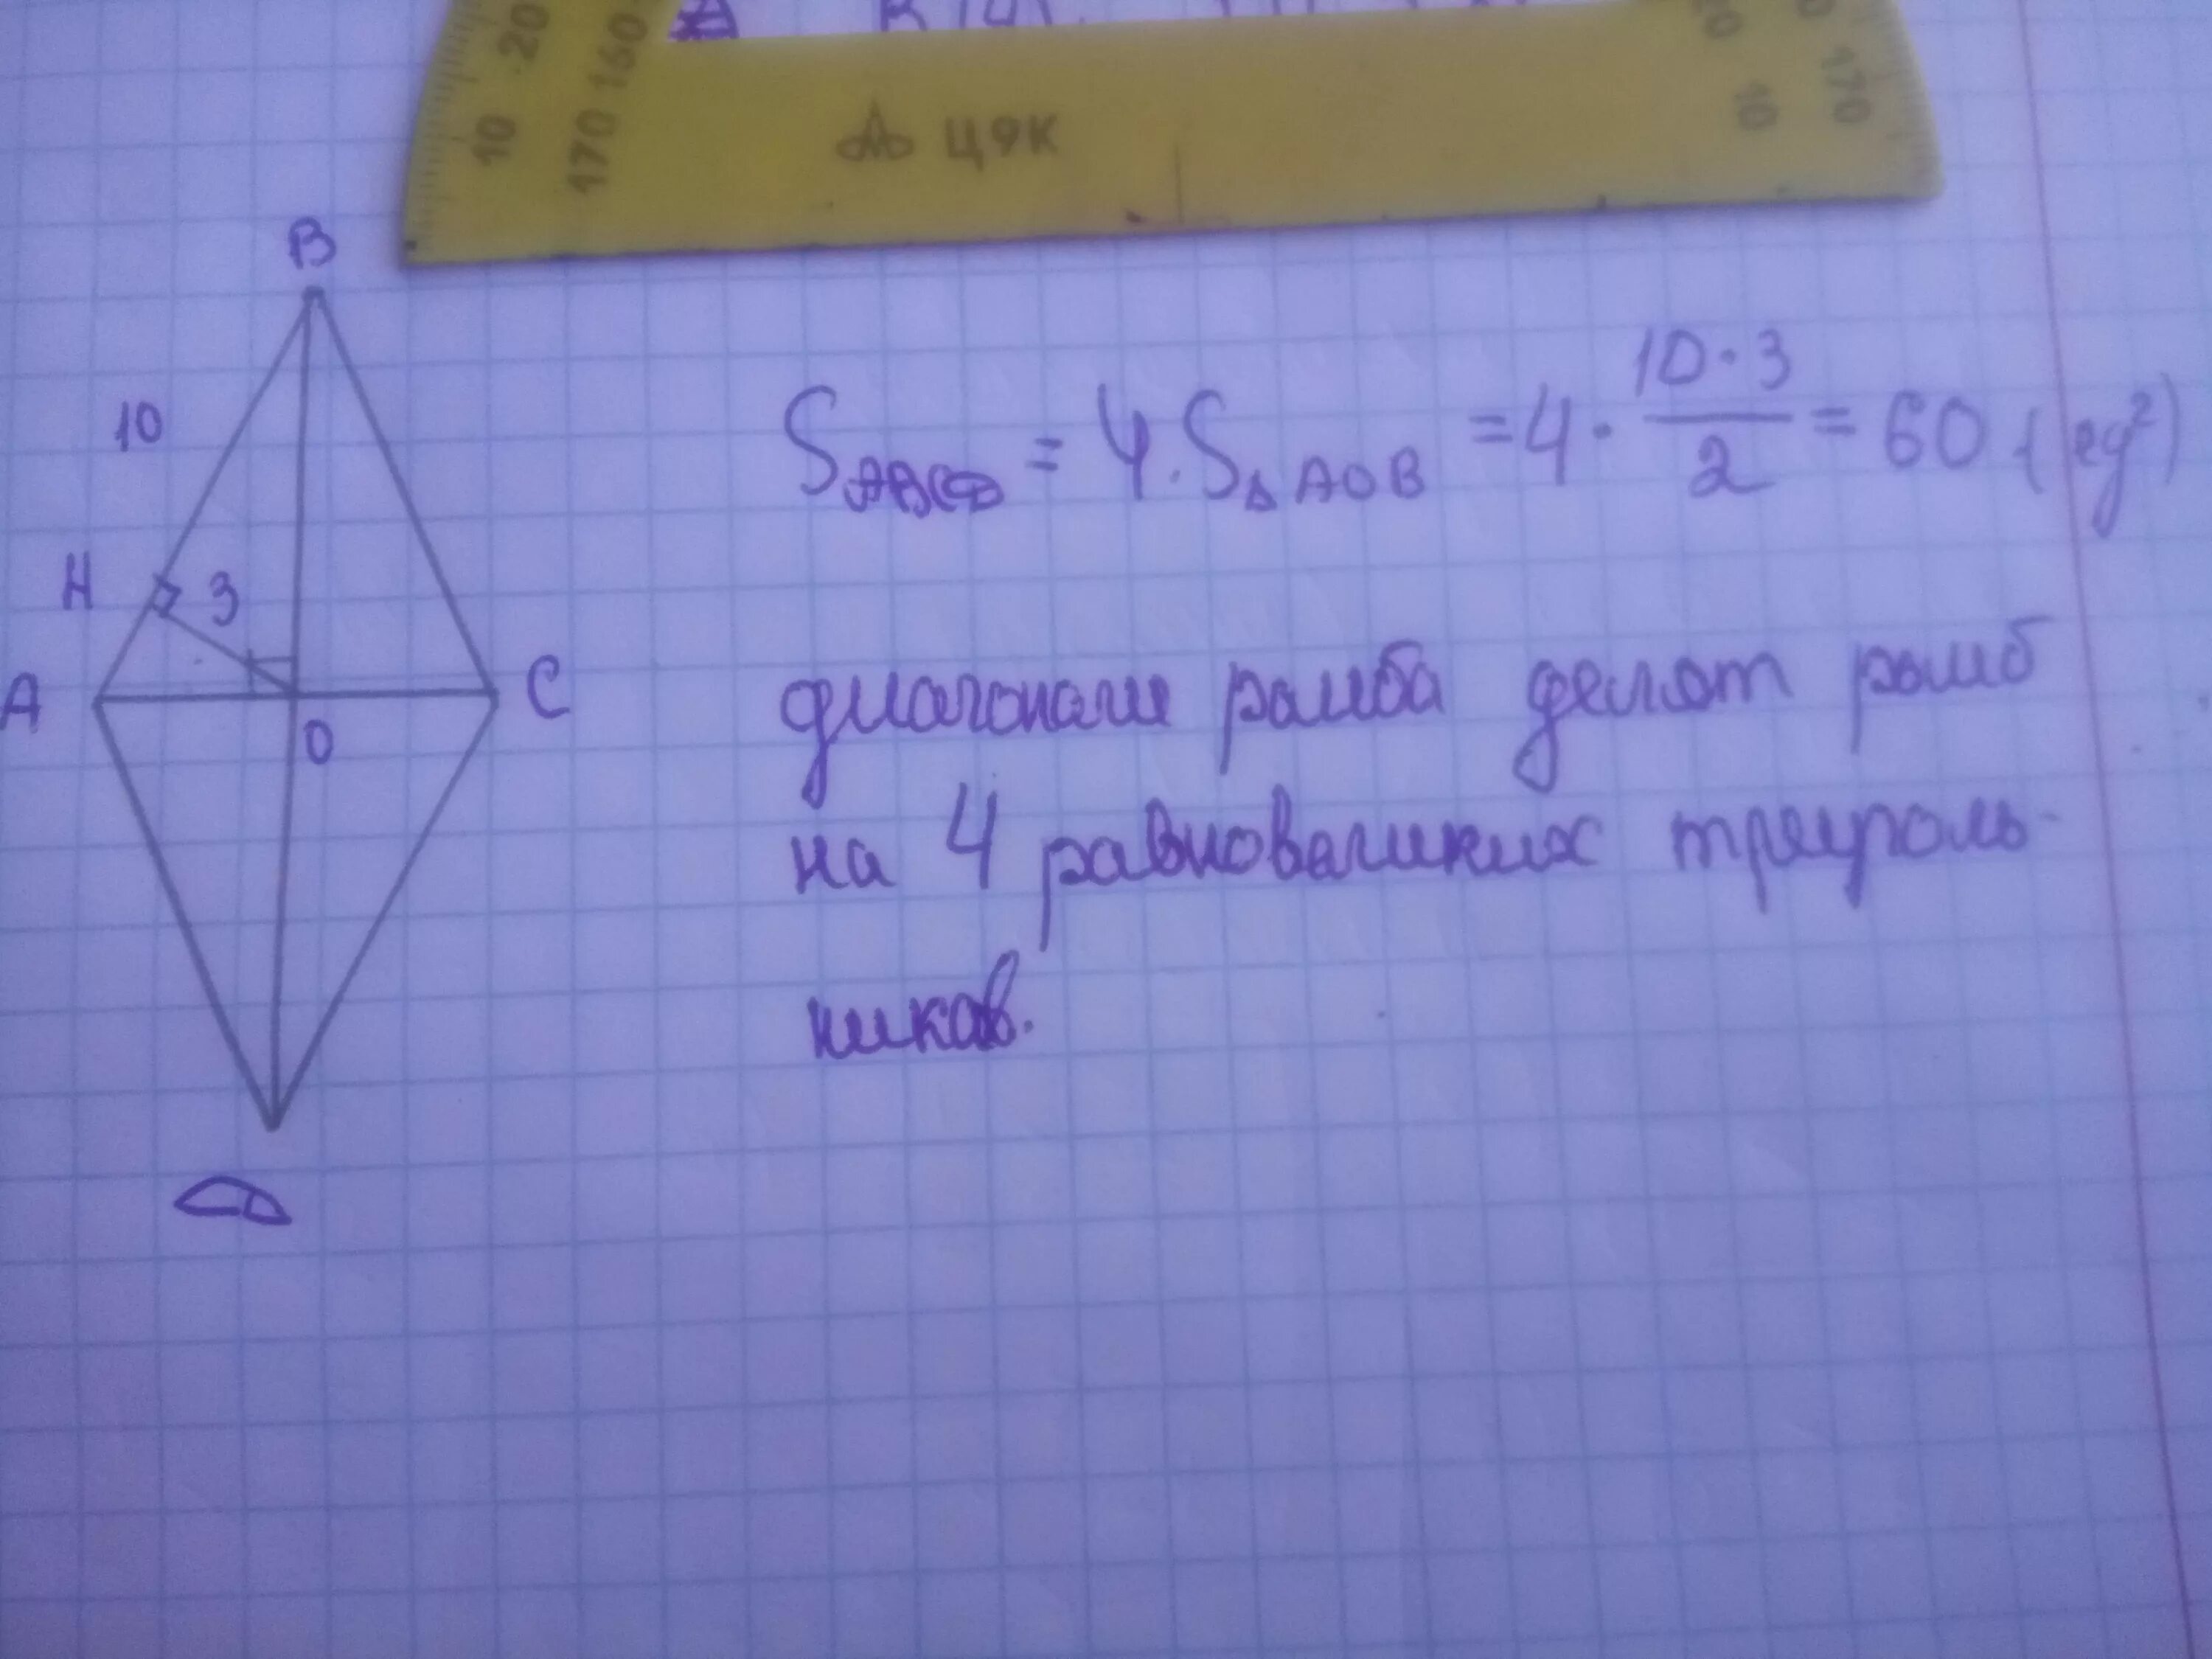 20
10
160
170
ЦЯК
20
10
170
B
10
H 3
A
C
O
D
S ABCD = 4 · S△AOB = 4 · 10 · 3 / 2 = 60 (ед²)
диагонали ромба делят ромб
на 4 равновеликих треуголь-
ников.